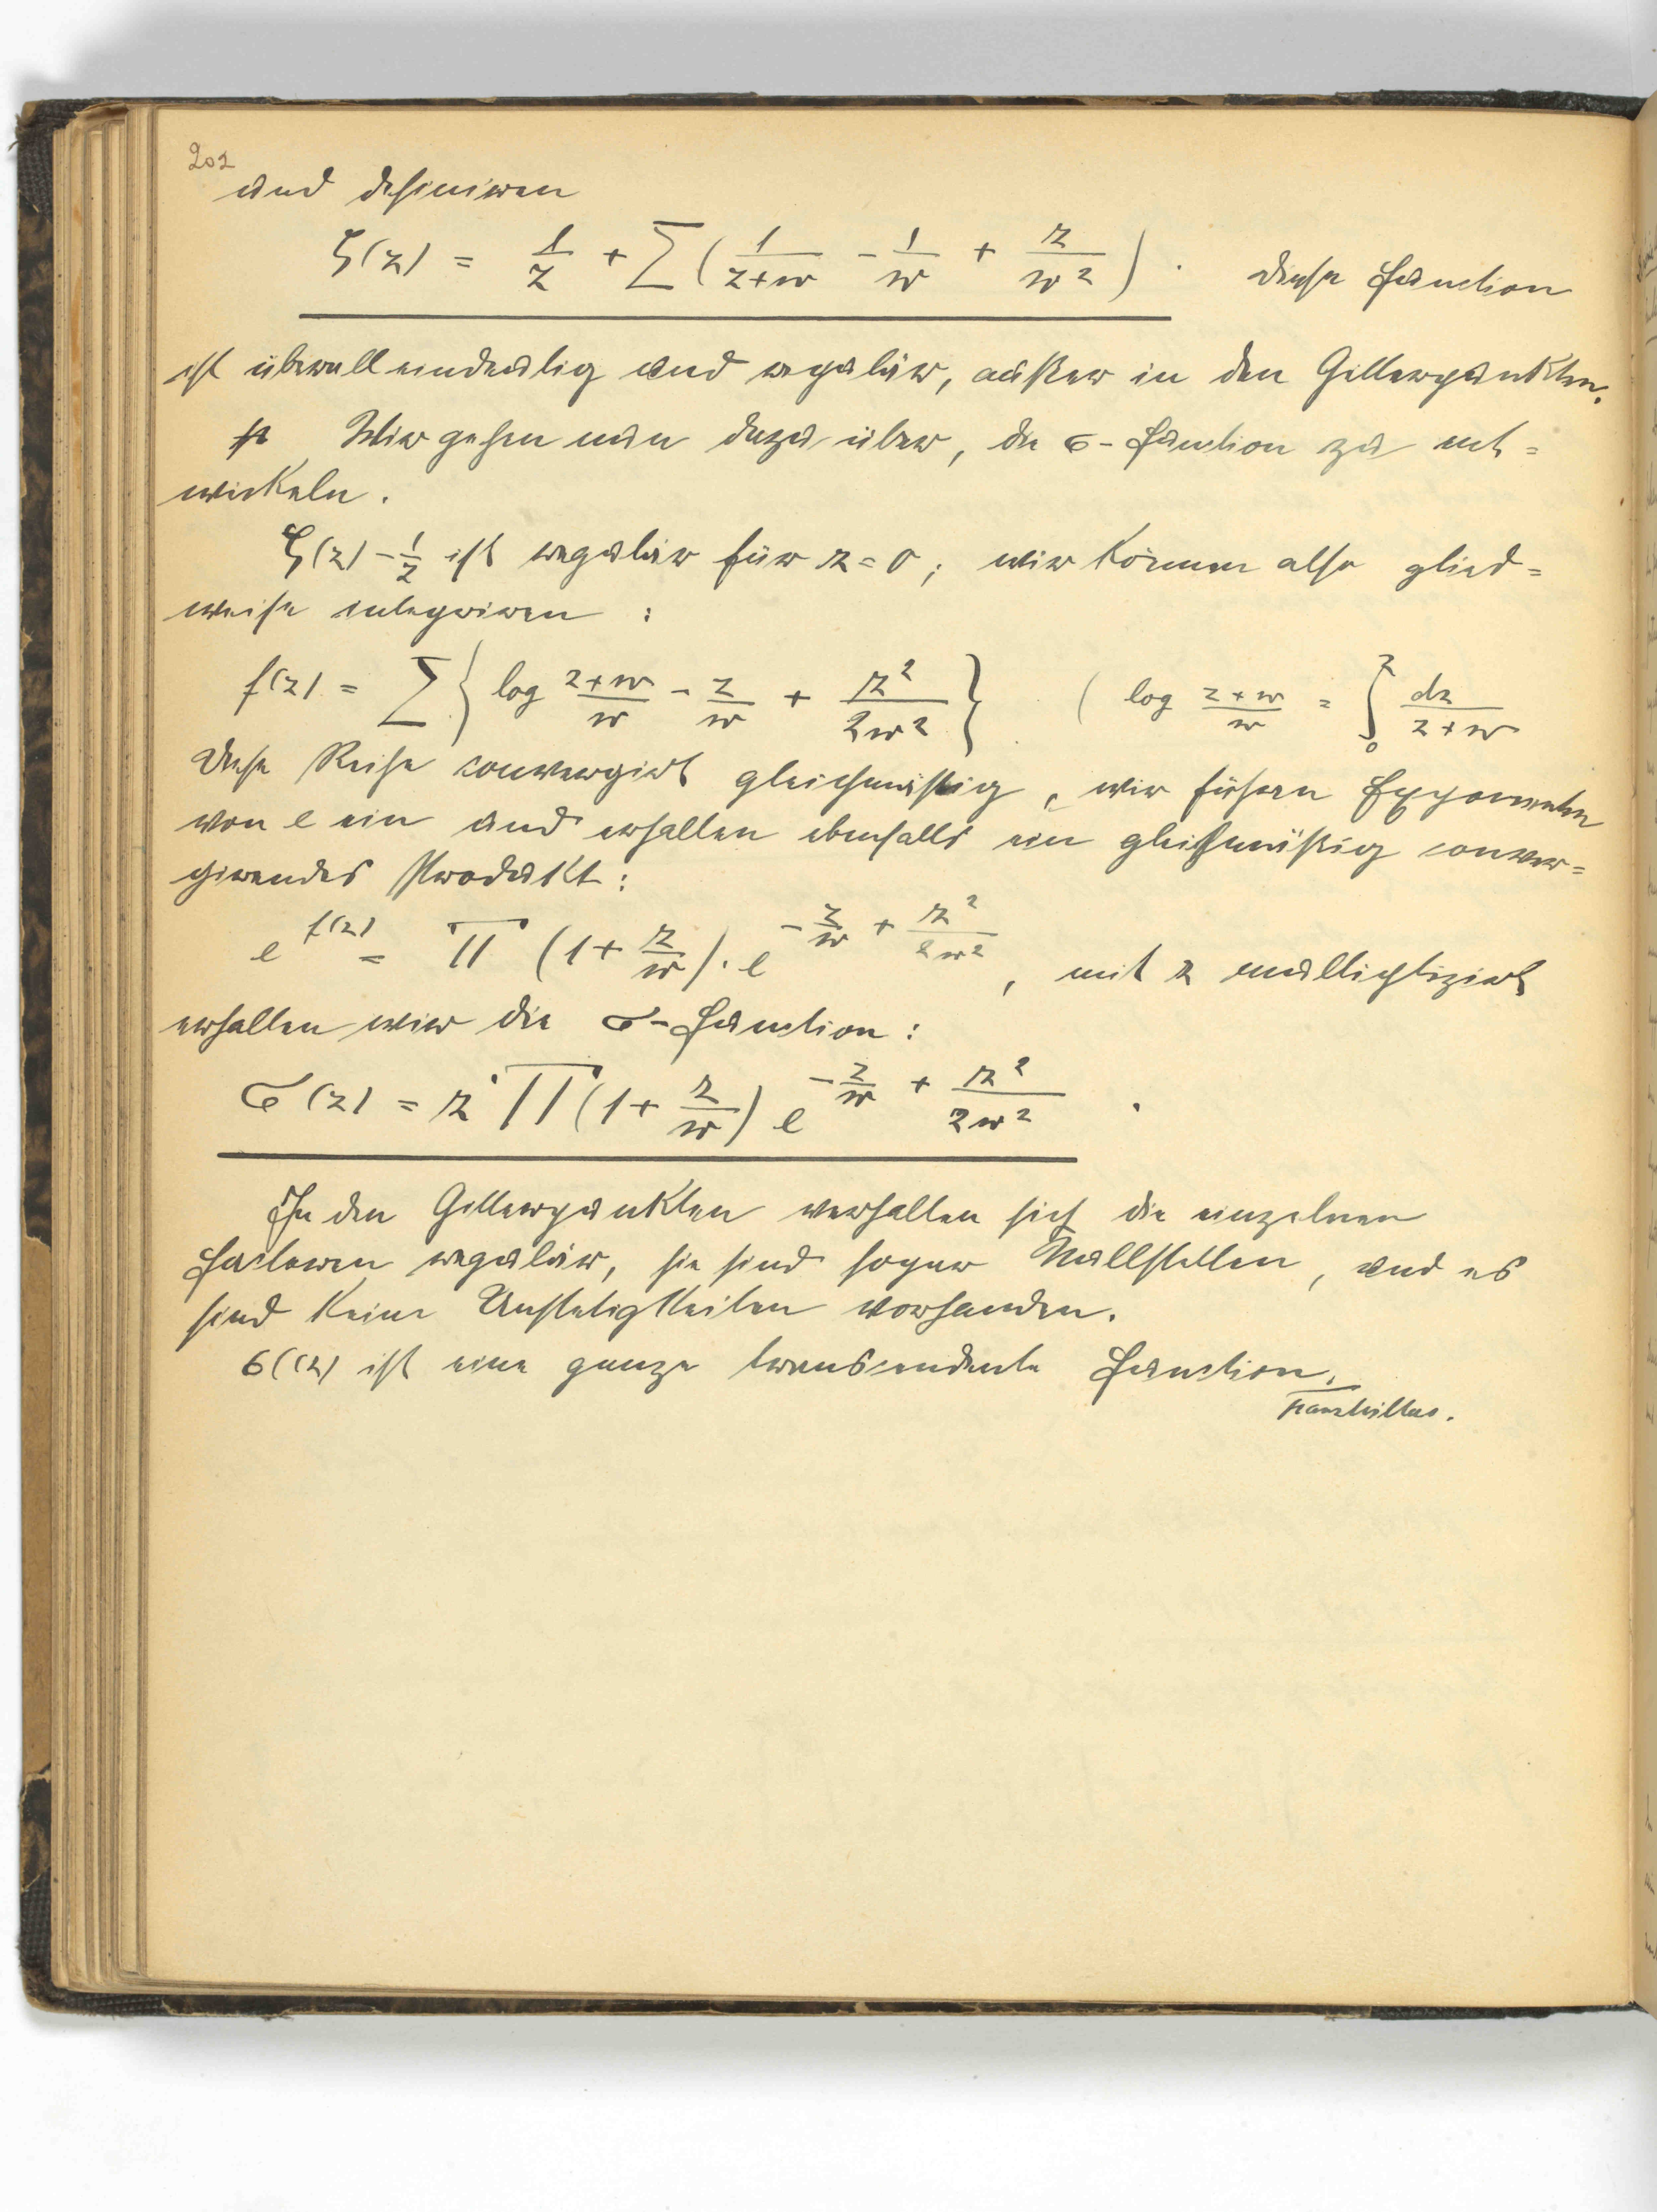 202
und definiren
ζ(z) = 1/z + ∑(1/(z+w) - 1/w + z/w²). Diese Function
ist überall eindeutig und regulär, außer in den Gitterpunkten.
Wir gehen nun dazu über, die σ-Function zu ent=
wickeln.
ζ(z) - 1/z ist regulär für z = 0; wir können also glied=
weise integriren :
f(z) = ∑{log (z+w)/w - z/w + z²/2w²} ( log (z+w)/w = ∫₀ᶻ dz/(z+w)
Diese Reihe convergirt gleichmäßig, wir führen Exponenten
von e ein und erhalten ebenfalls ein gleichmäßig conver=
girendes Produkt:
e^f(z) = ∏ (1 + z/w) · e^(-z/w + z²/2w²), mit z multiplizirt
erhalten wir die σ-Function:
σ(z) = z ∏'(1 + z/w) e^(-z/w + z²/2w²).
In den Gitterpunkten verhalten sich die einzelnen
Factoren regulär, sie sind sogar Nullstellen, und es
sind keine Unstetigkeiten vorhanden.
σ((z) ist eine ganze transcendente Function.